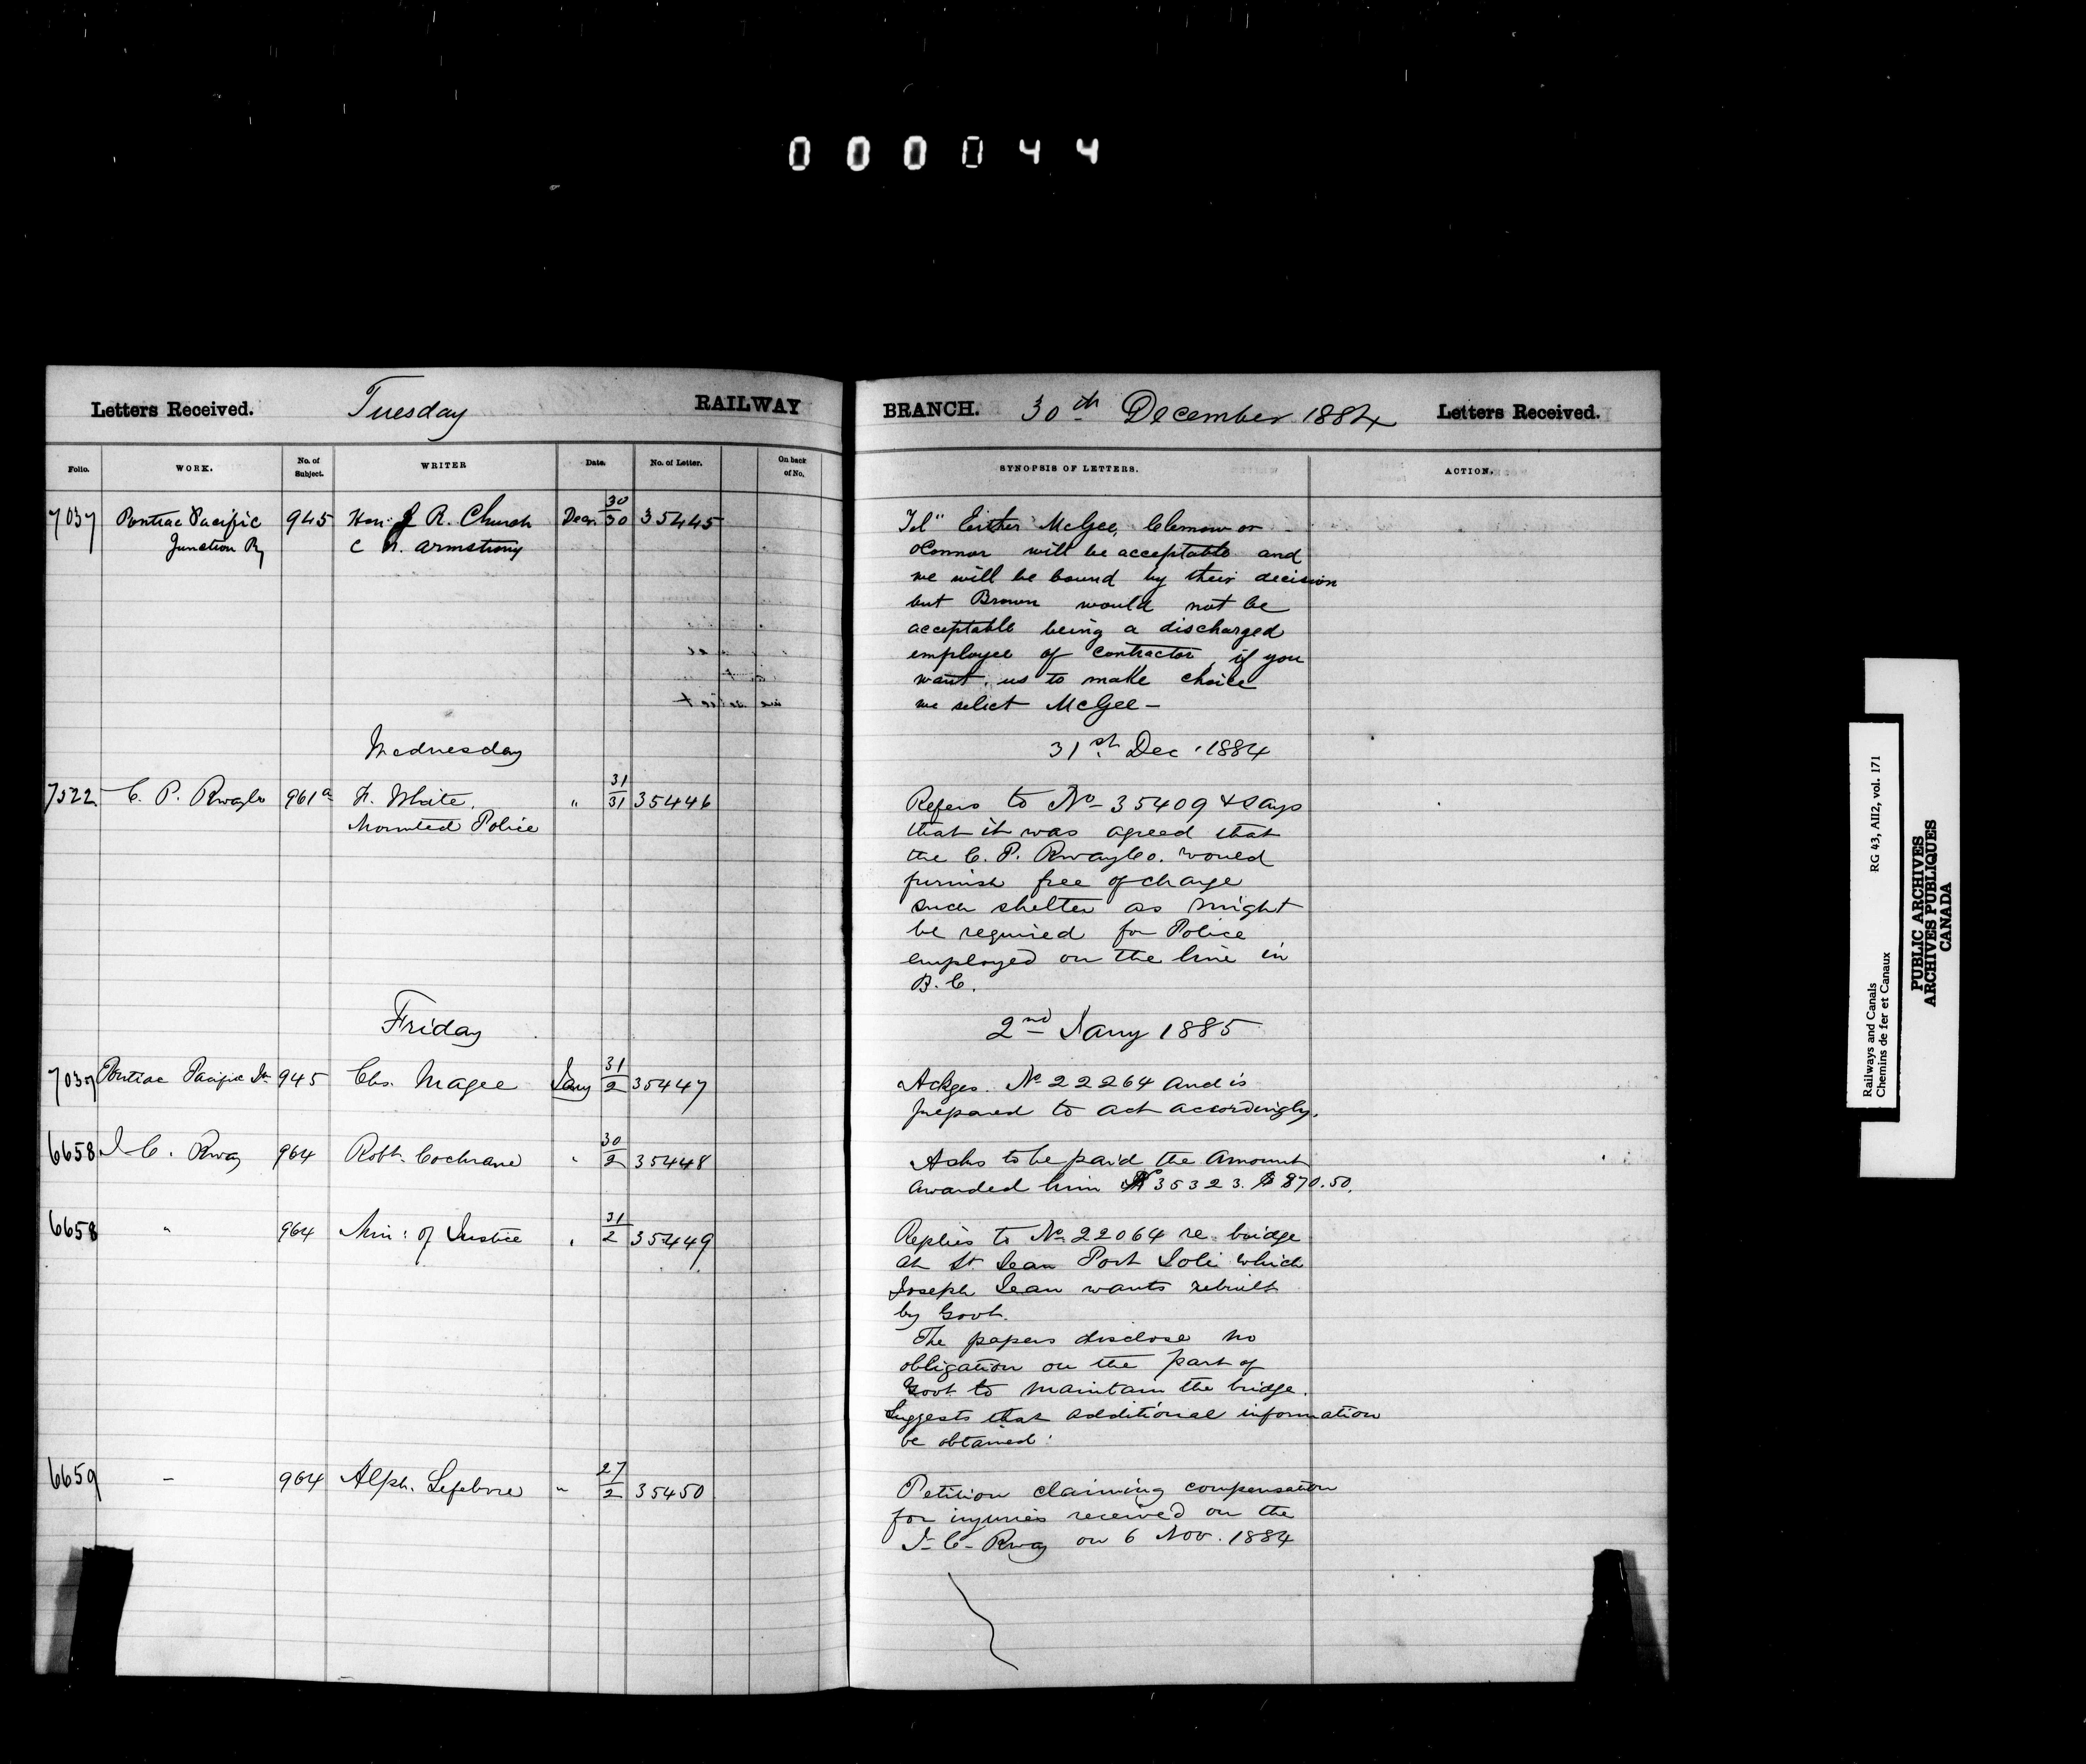 000044
Letters Received. Tuesday RAILWAY BRANCH. 30th December 1884 Letters Received.
Folio. WORK. No. of Subject. WRITER Date. No. of Letter. On back of No. SYNOPSIS OF LETTERS. ACTION.
7037 Pontiac Pacific 945 Hon: J R. Church Decr. 30/30 35445 Tel" Either McGee, Clemow or
Junction Ry C N. Armstrong OConnor will be acceptable and
we will be bound by their decision
but Brown would not be
acceptable being a discharged
employee of contractor, if you
want us to make choice
we select McGee -
Wednesday 31st Dec. 1884
7522 C. P. Rwayco 961a F. White, " 31/31 35446 Refers to No 35409 & says
Mounted Police that it was agreed that
the C. P. Rwayco. would
furnish free of charge
such shelter as might
be required for Police
employed on the line in
B. C.
Friday 2nd Jany 1885
7037 Pontiac Pacific Jn 945 Chs. Magee Jany 31/2 35447 Ackges. No 22264 and is
prepared to act accordingly.
6658 I C. Rway 964 Robt. Cochrane " 30/2 35448 Asks to be paid the amount
awarded him 35323. $870.50.
6658 " 964 Min: of Justice " 31/2 35449 Replies to No 22064 re bridge
at St Jean Port Joli which
Joseph Jean wants rebuilt
by Govt.
The papers disclose no
obligation on the part of
Govt to maintain the bridge.
Suggests that additional information
be obtained.
6659 - 964 Alph. Lefebvre " 27/2 35450 Petition claiming compensation
for injuries received on the
I- C- Rway on 6 Nov. 1884
Railways and Canals RG 43, AII2, vol. 171
Chemins de fer et Canaux
PUBLIC ARCHIVES
ARCHIVES PUBLIQUES
CANADA